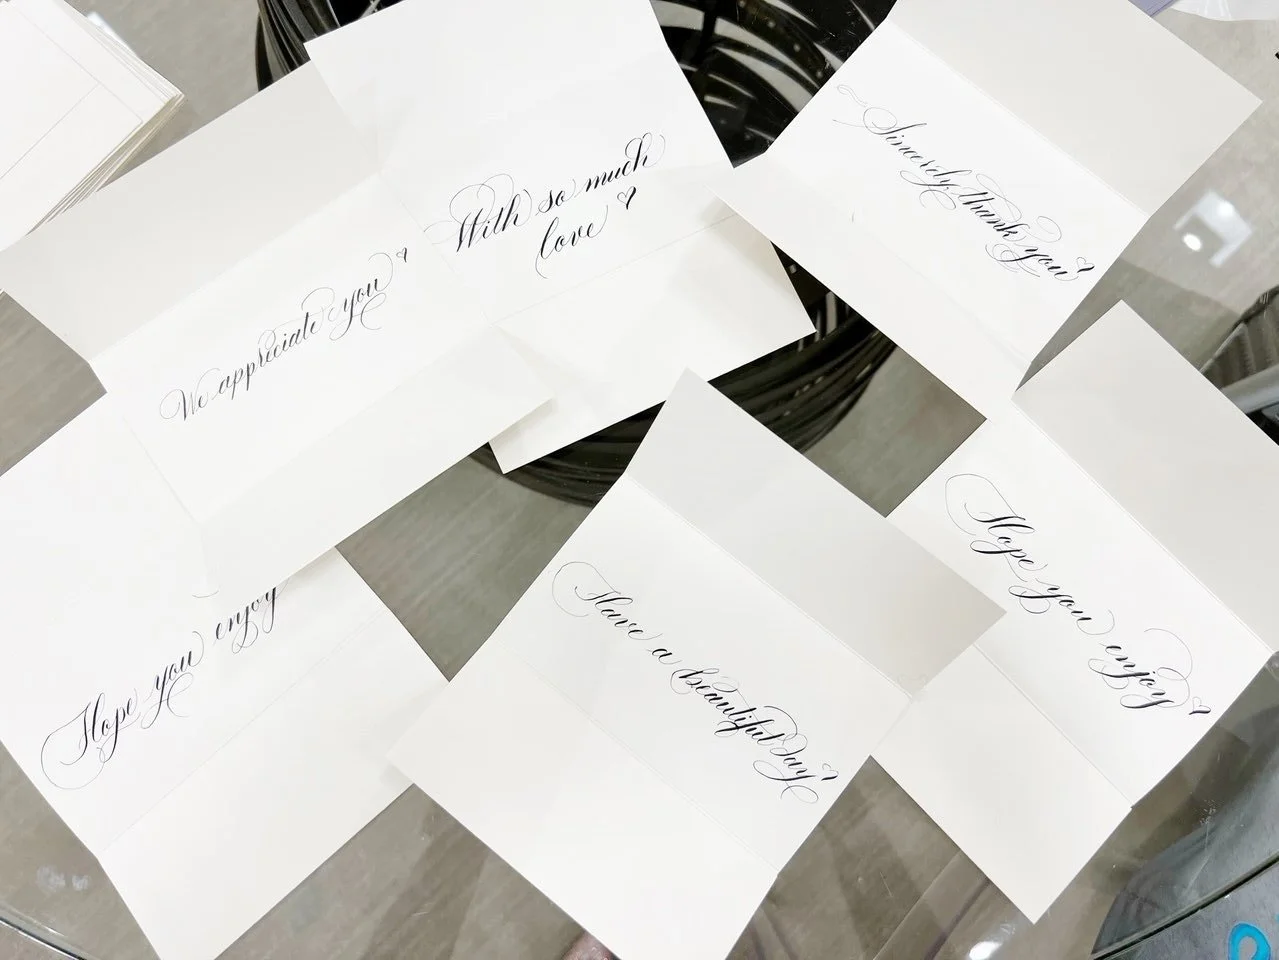 We appreciate you
With so much
love
Sincerely, thank you
Hope you enjoy
Have a beautiful day
Hope you enjoy